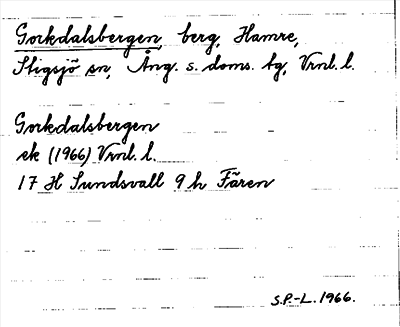 Gorkdalsbergen, berg, Hamre,
Stigsjö sn, Ång. s. doms. tg, Vrnl. l.
Gorkdalsbergen
ek (1966) Vrnl. l.
17 H Sundsvall 9 h Fären
S.P.-L. 1966.